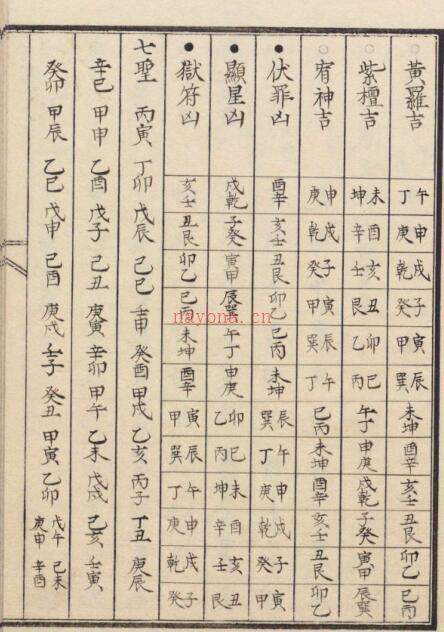 黃羅吉 午丁 申庚 戌乾 子癸 寅甲 辰巽 未坤 酉辛 亥壬 丑艮 卯乙 巳丙
紫檀吉 未坤 酉辛 亥壬 丑艮 卯乙 巳丙 午丁 申庚 戌乾 子癸 寅甲 辰巽
宥神吉 申庚 戌乾 子癸 寅甲 辰巽 午丁 巳丙 未坤 酉辛 亥壬 丑艮 卯乙
伏罪凶 酉辛 亥壬 丑艮 卯乙 巳丙 未坤 辰巽 午丁 申庚 戌乾 子癸 寅甲
顯星凶 戌乾 子癸 寅甲 辰巽 午丁 申庚 卯乙 巳丙 未坤 酉辛 亥壬 丑艮
獄符凶 亥壬 丑艮 卯乙 巳丙 未坤 酉辛 寅甲 辰巽 午丁 申庚 戌乾 子癸
七聖 丙寅 丁卯 戊辰 己巳 壬申 癸酉 甲戌 乙亥 丙子 丁丑 庚辰
辛巳 甲申 乙酉 戊子 己丑 庚寅 辛卯 甲午 乙未 戊戌 己亥 壬寅
癸卯 甲辰 乙巳 戊申 己酉 庚戌 壬子 癸丑 甲寅 乙卯 戊午 己未 庚申 辛酉
nayona.cn